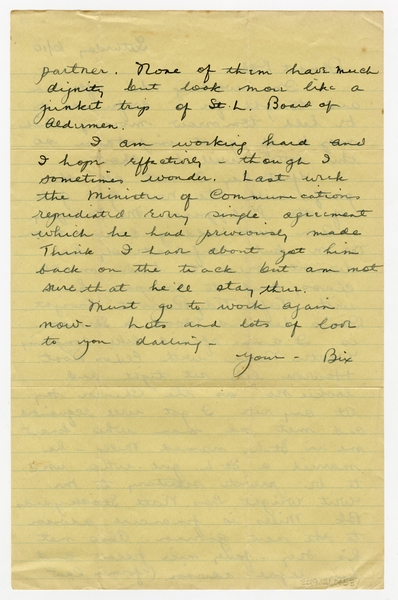 partner. None of them have much
dignity but look more like a
junket trip of St. L. Board of
Aldermen.
I am working hard and
I hope effectively - though I
sometimes wonder. Last week
the Minister of Communications
repudiated every single agreement
which he had previously made
Think I have about got him
back on the track but am not
sure that he'll stay there.
Must go to work again
now - Lots and lots of love
to you darling -
Your - Bix